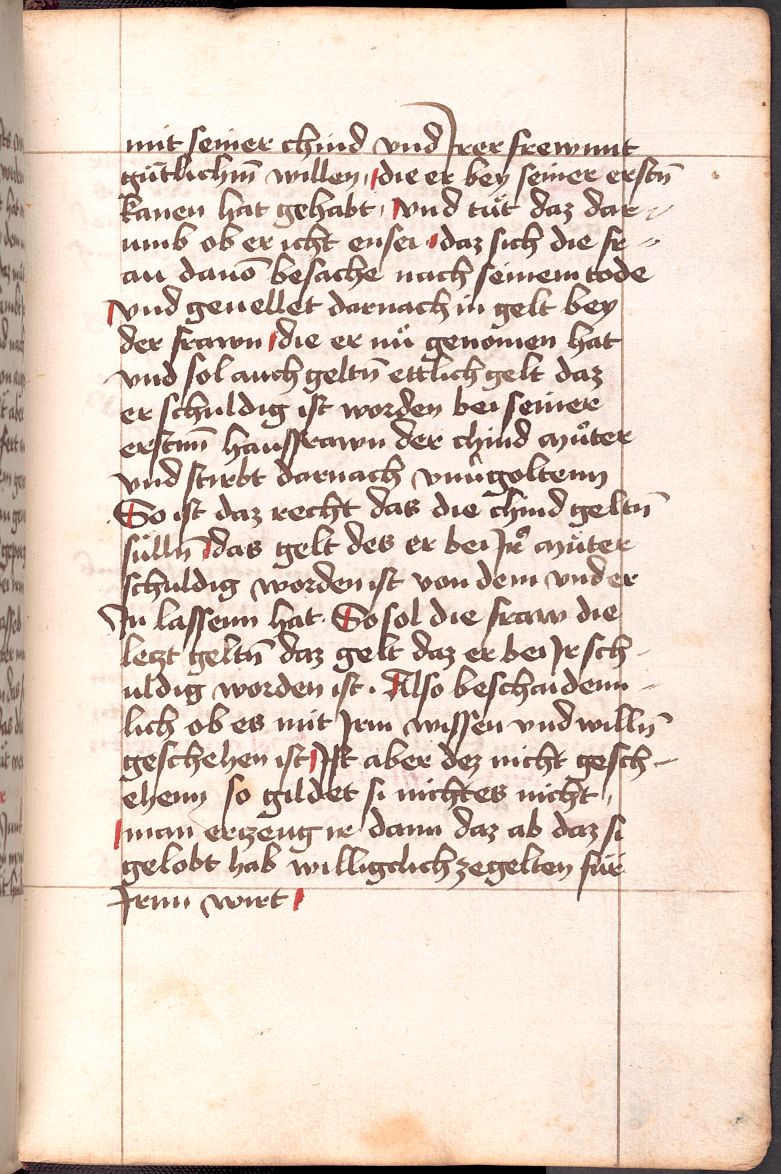 mit seiner chind vnd Irer frewnnt
gütlichm̄ willen, die er bey seiner erstn̄
kanen hat gehabt, vnd tüt daz dar-
umb ob er icht ensei daz sich die fr-
au dauō besache nach seinem tode
vnd geuellet darnach in gelt bey
der frawn die er nü genomen hat
vnd sol auch geltn̄ ettlich gelt daz
er schuldig ist worden bei seiner
erstnn̄ hausfrawn der chind müter
vnd stirbt darnach vnu̇goltenn
So ist daz recht das die chind geltn̄
sülln̄ das gelt des er bei Ir müter
schuldig worden ist von dem vnd er
In lassenn hat. So sol die fraw die
leczt geltn̄ daz gelt daz er bei Ir sch-
uldig worden ist. Also beschaidenn-
lich ob es mit Irm wissen vnd willn̄
geschehen ist Ist aber dez nicht gesch-
ehenn so gildet si nichtes nicht,
man erczeug ir dann daz ab daz si
gelobt hab willigclich zegelten für
Irnn wirt